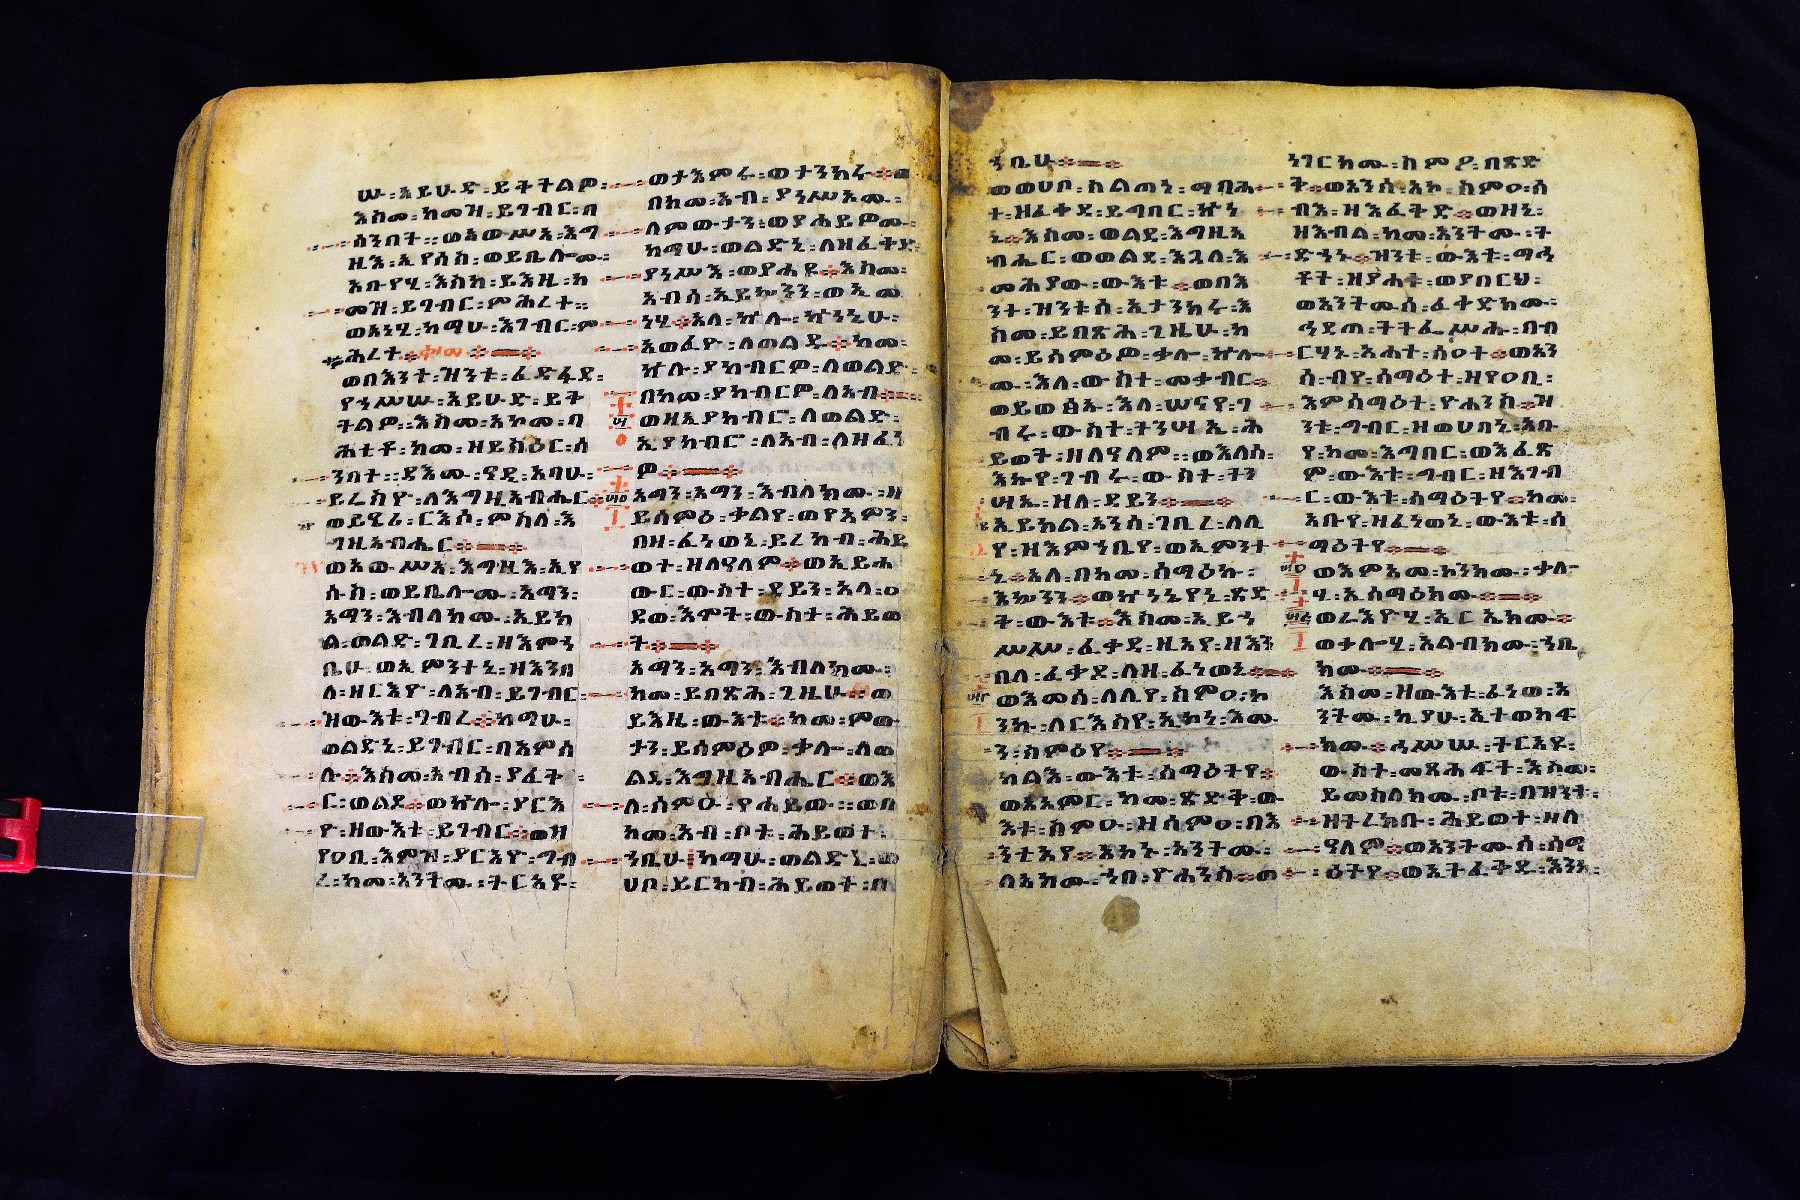 ሡ፡አይሁድ፡ይትትልዎ፡
እስመ፡ከመዝ፡ይገብር፡በ
ሰንበት፡፡ወአውሥአ፡እግ
ዚእ፡ኢየሱስ፡ወይቤሎሙ፡
አቡየሂ፡እስከ፡ይእዜ፡ከ
መዝ፡ይገብር፡ምሕረተ፡፡
ወአነሂ፡ከማሁ፡እገብር፡ም
ሕረተ፡
ወበእንተ፡ዝንቱ፡ፈድፋደ፡
የኀሥሡ፡አይሁድ፡ይት
ትልዎ፡፡እስመ፡አኮመ፡ባ
ሕቲቶ፡ከመ፡ዘይስዕር፡ሰ
ንበተ፡፡ዳእሙ፡ዓዲ፡አባሁ፡
ይሬስዮ፡ለእግዚአብሔር፡
ወይዔሪ፡ርእሶ፡ምስለ፡እ
ግዚአብሔር፨
ወአውሥአ፡እግዚእ፡ኢየ
ሱስ፡ወይቤሎሙ፡አማን፡
አማን፡እብለክሙ፡ኢይክ
ል፡ወልድ፡ገቢረ፡ዘእምኀ
ቤሁ፡ወኢምንተኒ፡ዘእንበ
ለ፡ዘርእዮ፡ለአብ፡ይገብር፡
ዝውእቱ፡ግብረ፡ከማሁ፡
ወልድኒ፡ይገብር፡በአምሳ
ሉ፨እስመ፡አብሰ፡ያፈቅ
ር፡ወልዶ፨ወኵሎ፡ያርእ
ዮ፡ዘውእቱ፡ይገብር፨ወዘ
የዐቢ፡እምዝ፡ያርእዮ፡ግብ
ረ፡ከመ፡አንትሙ፡ትርአዩ፡
ወታእምሩ፡ወታንክሩ፨ወ
በከመ፡አብ፡ያነሥኦሙ፡
ለምውታን፡ወያሐይዎሙ፡
ከማሁ፡ወልድኒ፡ለዘፈቀደ፡
ያነሥእ፡ወያሐዩ፨እስመ፡
አብሰ፡ኢይኴንን፡ወኢመ
ነሂ፨አላ፡ኵሎ፡ኵነኔሁ፡
አወፈዮ፡ለወልዱ፨ከመ፡
ኵሉ፡ያክብርዎ፡ለወልድ፡
በከመ፡ያከብርዎ፡ለአብ፨
ወዘኢያከብሮ፡ለወልድ፡
ኢያከብሮ፡ለአብ፡ለዘፈነ
ዎ፨
አማን፡አማን፡እብለክሙ፡ዘ
ይሰምዕ፡ቃልየ፡ወየአምን፡
በዘ፡ፈነወኒ፡ይረክብ፡ሕይ
ወተ፡ዘለዓለም፨ወኢይሐ
ውር፡ውስተ፡ደይን፡አላ፡ዐ
ደወ፡እሞት፡ውስተ፡ሕይወ
ት፨
አማን፡አማን፡እብለክሙ፡
ከመ፡ይበጽሕ፡ጊዜሁ፨ወ
ይእዜ፡ውእቱ፨ከመ፡ምው
ታን፡ይሰምዕዎ፡ቃሎ፡ለወ
ልደ፡እግዚአብሔር፨ወእ
ለ፡ሰምዑ፡የሐይው፡፡ወበ
ከመ፡አብ፡ቦቱ፡ሕይወተ፡
ኀቤሁ፡ከማሁ፡ወልድኒ፡ወ
ሀቦ፡ይርከብ፡ሕይወተ፡በ
ኀቤሁ፨
ወወሀቦ፡ስልጣነ፡ማበሐ
ተ፡ዘፈቀደ፡ይግበር፡ኵነ
ኔ፨እስመ፡ወልደ፡እግዚአ
ብሔር፡ወወልደ፡እጓለ፡እ
መሕያው፡ውእቱ፨ወበእ
ንተ፡ዝንቱሰ፡ኢታንክሩ፡እ
ስመ፡ይበጽሕ፡ጊዜሁ፡ከ
መ፡ይሰምዕዎ፡ቃሎ፡ኵሎ
ሙ፡እለ፡ውስተ፡መቃብር፨
ወይወፅኡ፡እለ፡ሠናየ፡ገ
ብሩ፡ውስተ፡ትንሣኤ፡ሕ
ይወት፡ዘለዓለም፡፡ወእለሰ፡
እኩየ፡ገብሩ፡ውስተ፡ትን
ሣኤ፡ዘለ፡ደይን፨
ኢይክል፡አንሰ፡ገቢረ፡ለሊ
የ፡ዘእምኀቤየ፡ወኢምንተ
ኒ፨አላ፡በከመ፡ሰማዕኩ፡
እኴንን፨ወኵነኔየኒ፡ጽድ
ቅ፡ውእቱ፨እስመ፡ኢይኀ
ሥሥ፡ፈቃደ፡ዚአየ፡ዘእን
በለ፡ፈቃደ፡ለዘ፡ፈነወኒ፨
ወእመሰ፡ለሊየ፡ስምዐ፡ኮ
ንኩ፡ለርእስየ፡ኢኮነ፡እሙ
ነ፡ስምዕየ፨
ካልእ፡ውእቱ፡ሰማዕትየ፨
ወአአምር፡ከመ፡ጽድቅ፡ው
እቱ፡ስምዑ፡ዝሰምዐ፡በእ
ንቲአየ፨እስኩ፡አንትሙ፡
ለአክሙ፡ኀበ፡ዮሐንስ፨ወ
ነገርክሙ፡ስምዖ፡በጽድ
ቅ፨ወአንሰ፡አኮ፡ስምዐ፡ሰ
ብእ፡ዘእፈትድ፨ወዘኒ፡
ዘእብል፡ከመ፡አንትሙ፡ት
ድኀኑ፨ዝንቱ፡ውእቱ፡ማኅ
ቶት፡ዘያሐቱ፡ወያበርህ፡
ወአንትሙሰ፡ፈቀድክሙ፡
ኅዳጠ፡ትትፌሥሑ፡በብ
ርሃኑ፡አሐተ፡ሰዐተ፨ወአን
ሰ፡ብየ፡ሰማዕተ፡ዘየዐቢ፡
እምሰማዕተ፡ዮሐንስ፨ዝ
ንቱ፡ግብር፡ዘወሀበኒ፡አቡ
የ፡ከመ፡እግበር፡ወእፈጽ
ም፡ውእቱ፡ግብር፡ዘእገብ
ር፡ውእቱ፡ሰማዕትየ፨ከመ፡
አቡየ፡ዘፈነወኒ፡ውእቱ፡ሰ
ማዕትየ፨
ወእምአመ፡ኮንክሙ፡ቃሎ
ሂ፡ኢሰማዕክሙ፨
ወራእዮሂ፡ኢርኢክሙ፨
ወቃሎሂ፡አልብክሙ፡ኀቤ
ክሙ፨
እስመ፡ዘውእቱ፡ፈነወ፡አ
ንትሙ፡ኪያሁ፡ኢተወከፍ
ክሙ፨ኃሥሡ፡ትርአዩ፡
ውስተ፡መጻሕፍት፡እስመ፡
ይመስለክሙ፡ቦቱ፡በዝንቱ፡
ዘትረክቡ፡ሕይወተ፡ዘለ
ዓለም፨ወእንትሙሰ፡ሰማ
ዕትየ፨ወኢትፈቅዱ፡እንከ፡